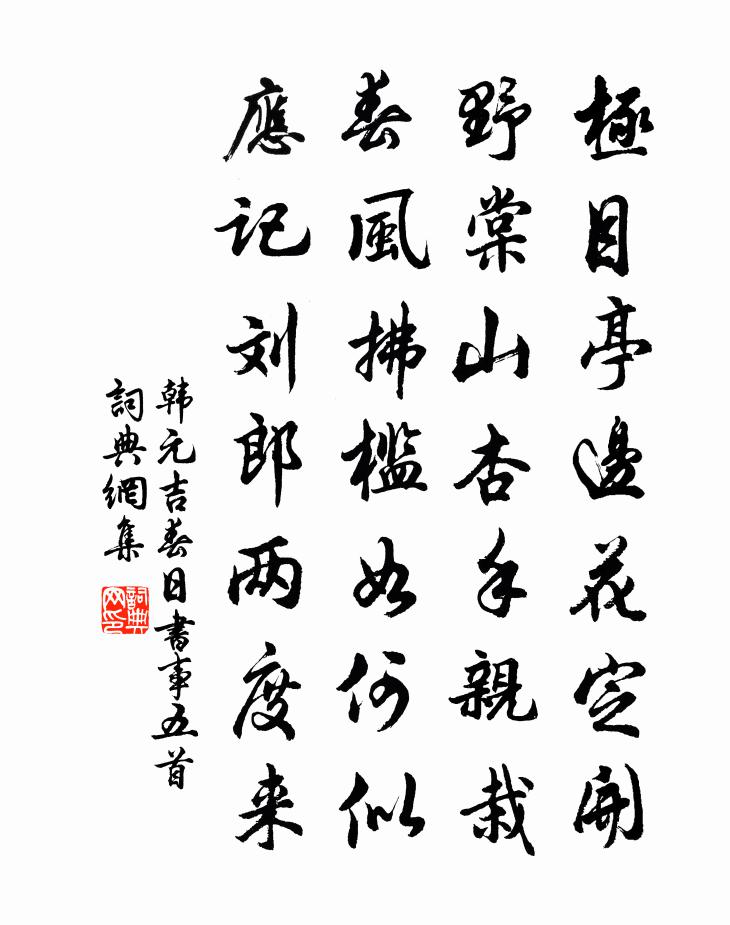 極目亭邊花定開
野棠山杏手親栽
春風拂檻如何似
應记刘郎两度来
韩元吉春日書事五首
詞典網集
詞典网印